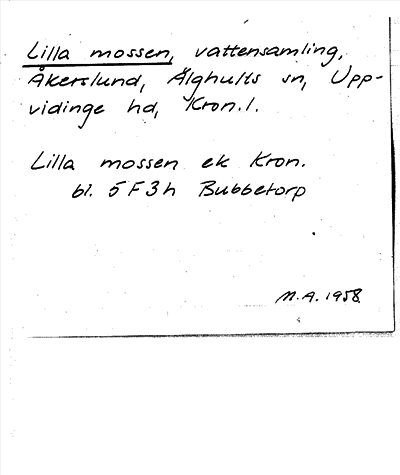 Lilla mossen, vattensamling,
Åkerslund, Älghults sn, Upp-
vidinge hd, Kron.l.
Lilla mossen ek Kron.
bl. 5F3h Bubbetorp
M.A. 1958